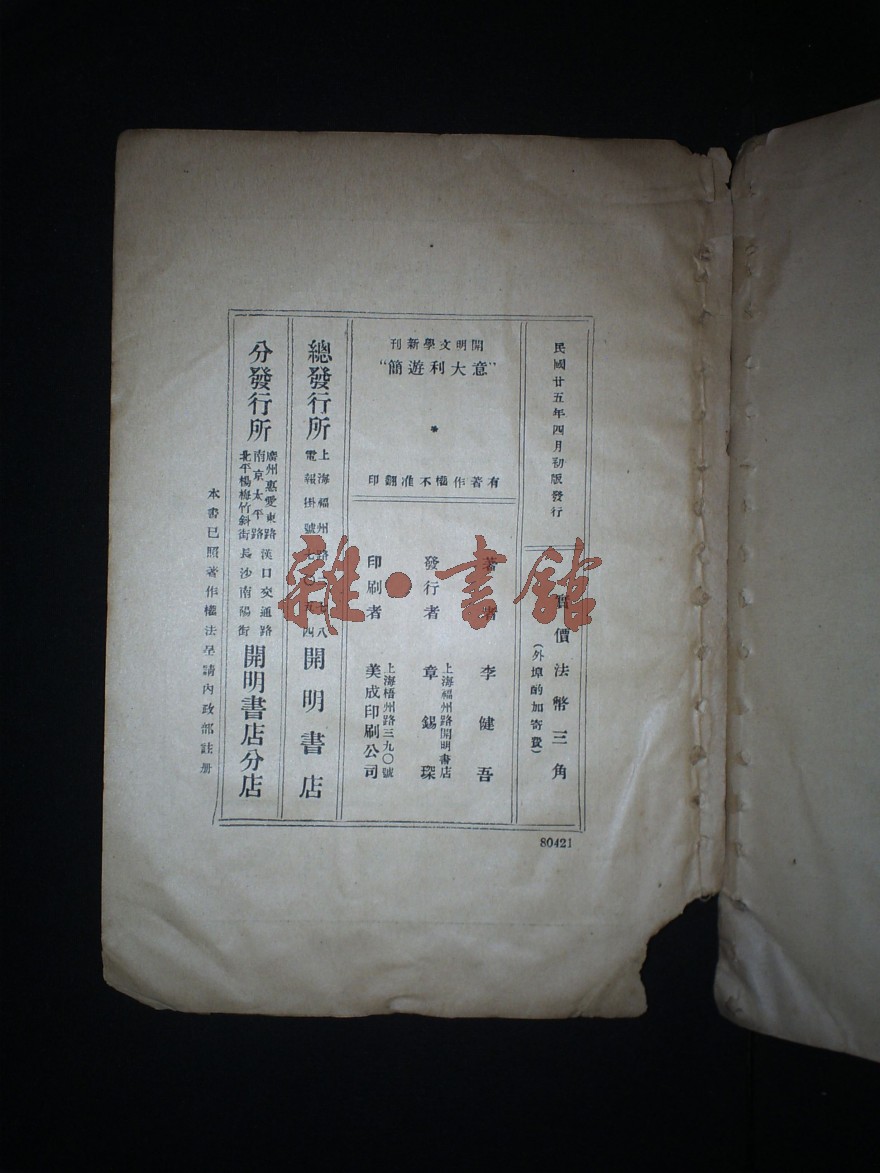 民國廿五年四月初版發行
實價法幣三角
(外埠酌加寄費)
開明文學新刊
“意大利遊簡”
有著作權不准翻印
著者 李健吾
發行者 章錫琛
上海福州路開明書店
印刷者 美成印刷公司
上海梧州路三九〇號
總發行所 上海福州路
電報掛號七〇五四
開明書店
分發行所
廣州惠愛東路 漢口交通路
南京太平路
北平楊梅竹斜街 長沙南陽街
開明書店分店
本書已照著作權法呈請內政部註冊
80421
雜·書館